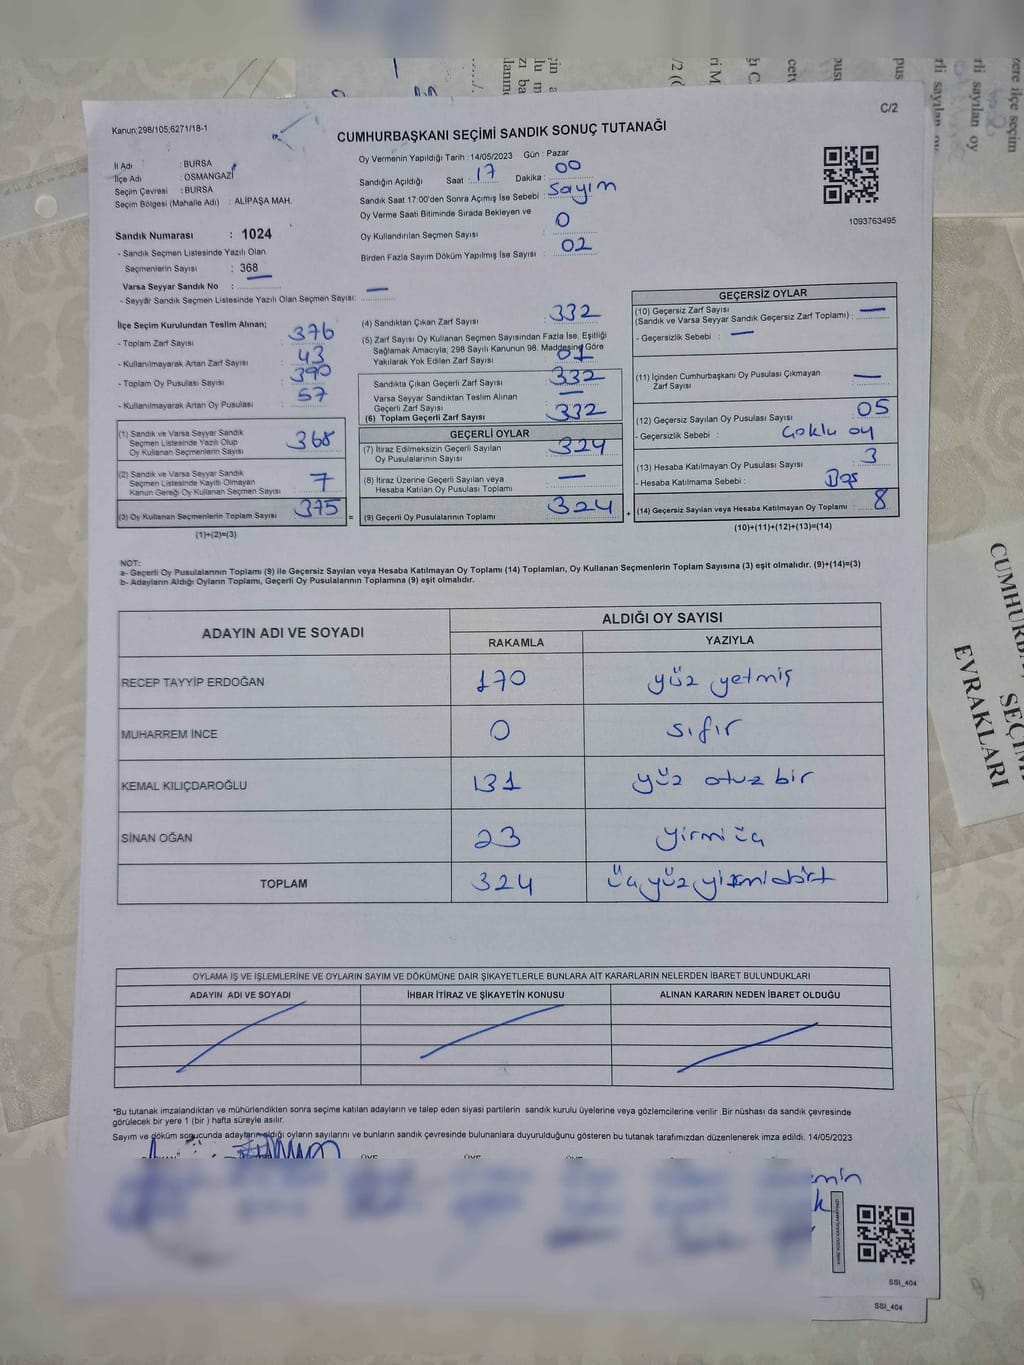 C/2
Kanun:298/105;6271/18-1
CUMHURBAŞKANI SEÇİMİ SANDIK SONUÇ TUTANAĞI
İl Adı : BURSA
İlçe Adı : OSMANGAZİ
Seçim Çevresi : BURSA
Seçim Bölgesi (Mahalle Adı) : ALİPAŞA MAH.
Sandık Numarası : 1024
- Sandık Seçmen Listesinde Yazılı Olan
Seçmenlerin Sayısı : 368
Varsa Seyyar Sandık No : —
- Seyyar Sandık Seçmen Listesinde Yazılı Olan Seçmen Sayısı: —
Oy Vermenin Yapıldığı Tarih : 14/05/2023 Gün : Pazar
Sandığın Açıldığı Saat : 17 Dakika : 00
Sandık Saat 17:00'den Sonra Açımış İse Sebebi : Sayım
Oy Verme Saati Bitiminde Sırada Bekleyen ve
Oy Kullandırılan Seçmen Sayısı : 0
Birden Fazla Sayım Döküm Yapılmış İse Sayısı : 02
1093763495
İlçe Seçim Kurulundan Teslim Alınan;
- Toplam Zarf Sayısı : 376
- Kullanılmayarak Artan Zarf Sayısı : 43
- Toplam Oy Pusulası Sayısı : 390
- Kullanılmayarak Artan Oy Pusulası : 57
(1) Sandık ve Varsa Seyyar Sandık
Seçmen Listesinde Yazılı Olup
Oy Kullanan Seçmenlerin Sayısı : 368
(2) Sandık ve Varsa Seyyar Sandık
Seçmen Listesinde Kayıtlı Olmayan
Kanun Gereği Oy Kullanan Seçmen Sayısı : 7
(3) Oy Kullanan Seçmenlerin Toplam Sayısı : 375 =
(1)+(2)=(3)
(4) Sandıktan Çıkan Zarf Sayısı : 332
(5) Zarf Sayısı Oy Kullanan Seçmen Sayısından Fazla İse, Eşitliği
Sağlamak Amacıyla; 298 Sayılı Kanunun 98. Maddesine Göre
Yakılarak Yok Edilen Zarf Sayısı : 01
Sandıkta Çıkan Geçerli Zarf Sayısı : 332
Varsa Seyyar Sandıktan Çıkan
Geçerli Zarf Sayısı : —
(6) Toplam Geçerli Zarf Sayısı : 332
GEÇERLİ OYLAR
(7) İtiraz Edilmeksizin Geçerli Sayılan
Oy Pusulalarının Sayısı : 324
(8) İtiraz Üzerine Geçerli Sayılan veya
Hesaba Katılan Oy Pusulası Toplamı : —
(9) Geçerli Oy Pusulalarının Toplamı : 324 +
GEÇERSİZ OYLAR
(10) Geçersiz Zarf Sayısı
(Sandık ve Varsa Seyyar Sandık Geçersiz Zarf Toplamı) : —
- Geçersizlik Sebebi : —
(11) İçinden Cumhurbaşkanı Oy Pusulası Çıkmayan
Zarf Sayısı : —
(12) Geçersiz Sayılan Oy Pusulası Sayısı : 05
- Geçersizlik Sebebi : Çoklu oy
(13) Hesaba Katılmayan Oy Pusulası Sayısı : 3
- Hesaba Katılmama Sebebi : Boş
(14) Geçersiz Sayılan veya Hesaba Katılmayan Oy Toplamı : 8
(10)+(11)+(12)+(13)=(14)
NOT:
a- Geçerli Oy Pusulalarının Toplamı (9) ile Geçersiz Sayılan veya Hesaba Katılmayan Oy Toplamı (14) Toplamları, Oy Kullanan Seçmenlerin Toplam Sayısına (3) eşit olmalıdır. (9)+(14)=(3)
b- Adayların Aldığı Oyların Toplamı, Geçerli Oy Pusulalarının Toplamına (9) eşit olmalıdır.
ADAYIN ADI VE SOYADI ALDIĞI OY SAYISI
RAKAMLA YAZIYLA
RECEP TAYYİP ERDOĞAN 170 yüz yetmiş
MUHARREM İNCE 0 sıfır
KEMAL KILIÇDAROĞLU 131 yüz otuz bir
SİNAN OĞAN 23 yirmi üç
TOPLAM 324 üç yüz yirmi dört
OYLAMA İŞ VE İŞLEMLERİNE VE OYLARIN SAYIM VE DÖKÜMÜNE DAİR ŞİKAYETLERLE BUNLARA AİT KARARLARIN NELERDEN İBARET BULUNDUKLARI
ADAYIN ADI VE SOYADI İHBAR İTİRAZ VE ŞİKAYETİN KONUSU ALINAN KARARIN NEDEN İBARET OLDUĞU
*Bu tutanak imzalandıktan ve mühürlendikten sonra seçime katılan adayların ve talep eden siyasi partilerin sandık kurulu üyelerine veya gözlemcilerine verilir. Bir nüshası da sandık çevresinde
görülecek bir yere 1 (bir ) hafta süreyle asılır.
Sayım ve döküm sonucunda adayların aldığı oyların sayılarını ve bunların sandık çevresinde bulunanlara duyurulduğunu gösteren bu tutanak tarafımızdan düzenlenerek imza edildi. 14/05/2023
SSI_404
SSI_404
SEÇİM
EVRAKLARI